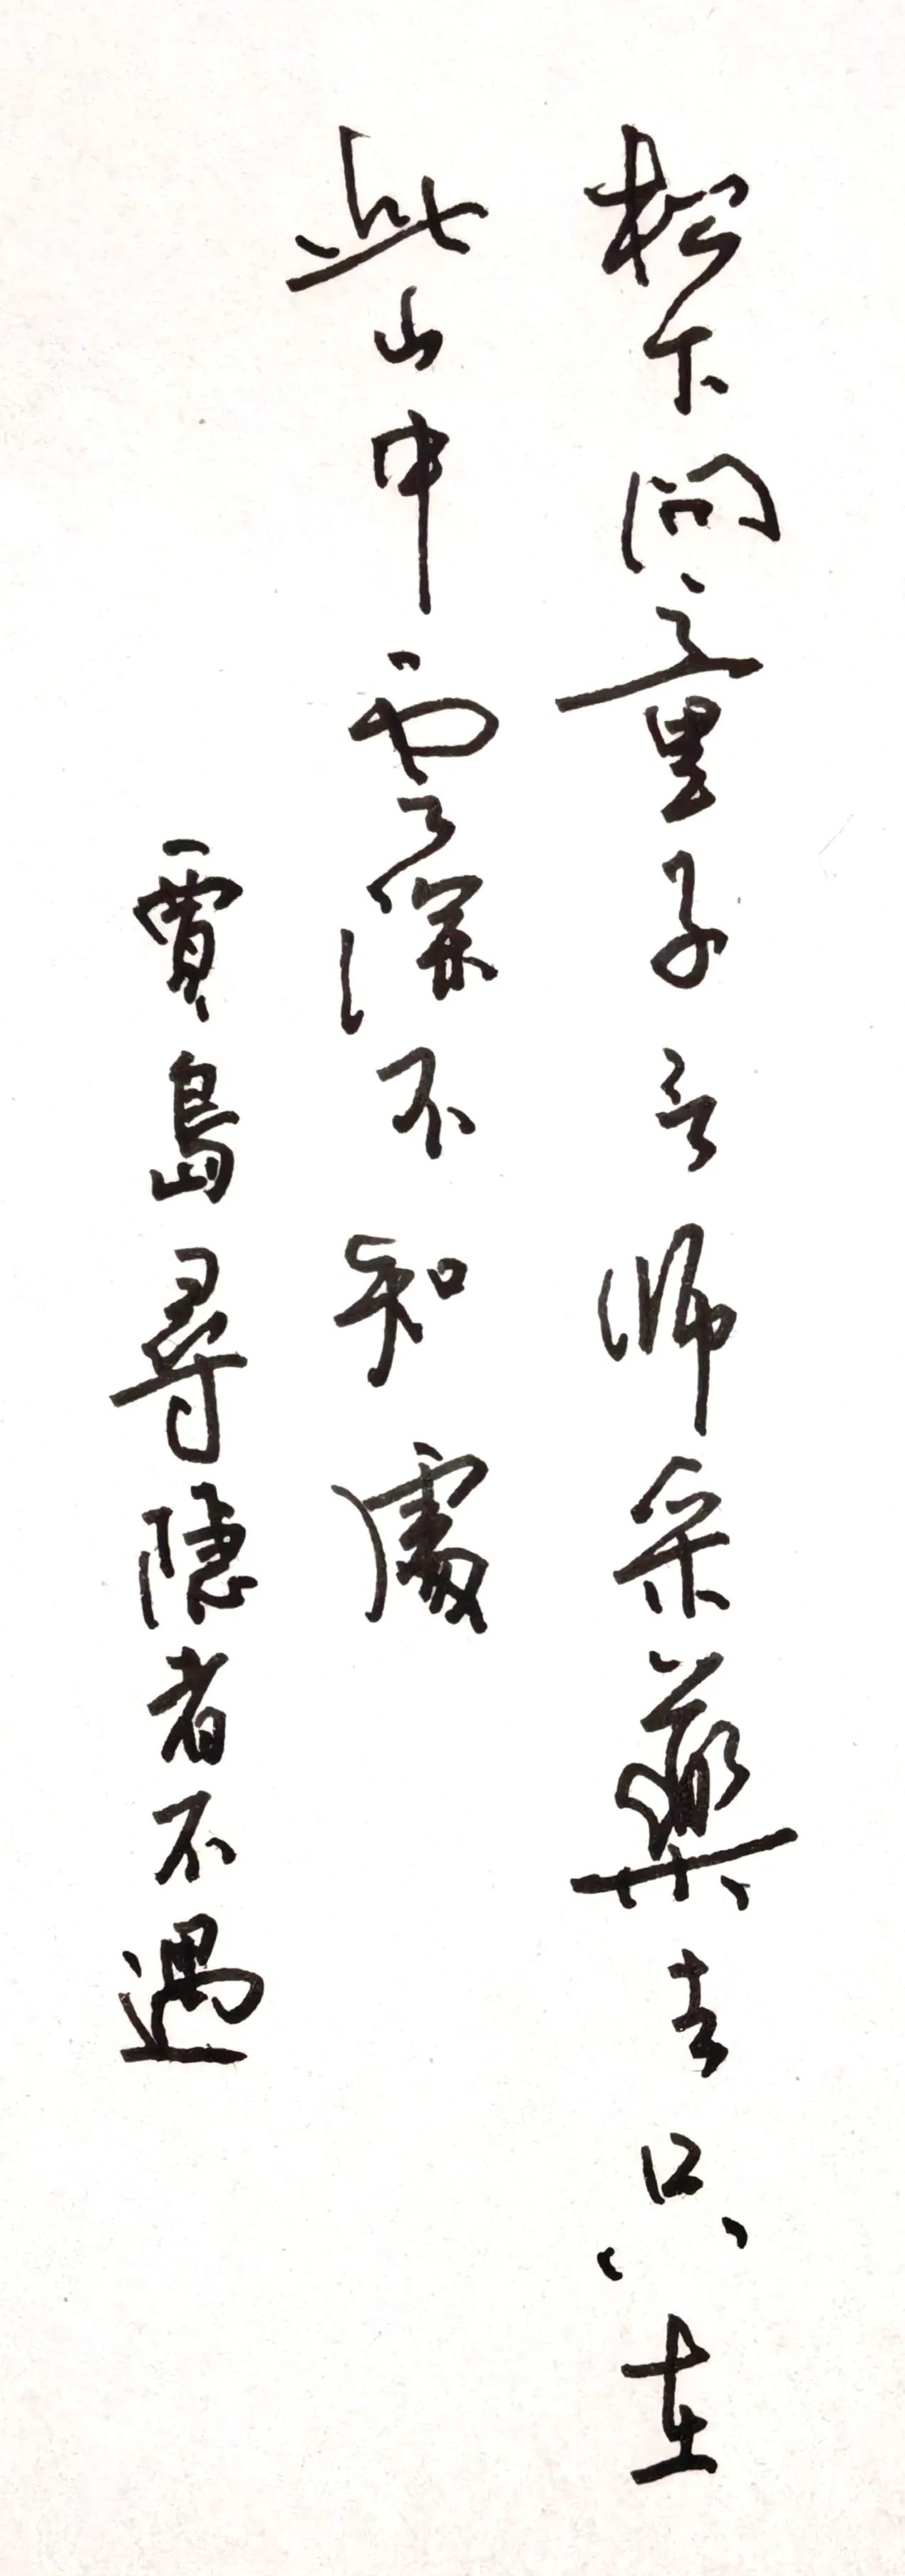 松下問童子言師采藥去只在
此山中雲深不知處
賈島尋隱者不遇